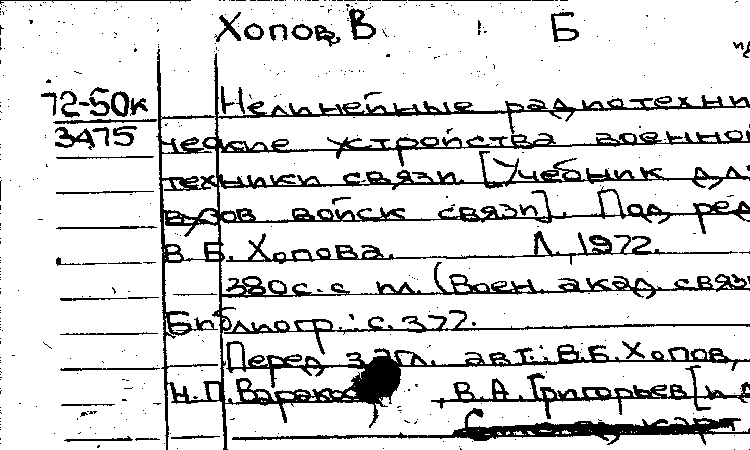 Хопов, В Б
72-50к Нелинейные радиотехни
3475 ческие устройства военной
техники связи. [Учебник для
вузов войск связи]. Под ред
В. Б. Хопова. Л., 1972.
380 с. с ил. (Воен. акад. связи
Библиогр.: с. 377.
Перед загл. авт.: В.Б. Хопов,
Н.П. , В.А. Григорьев [и д